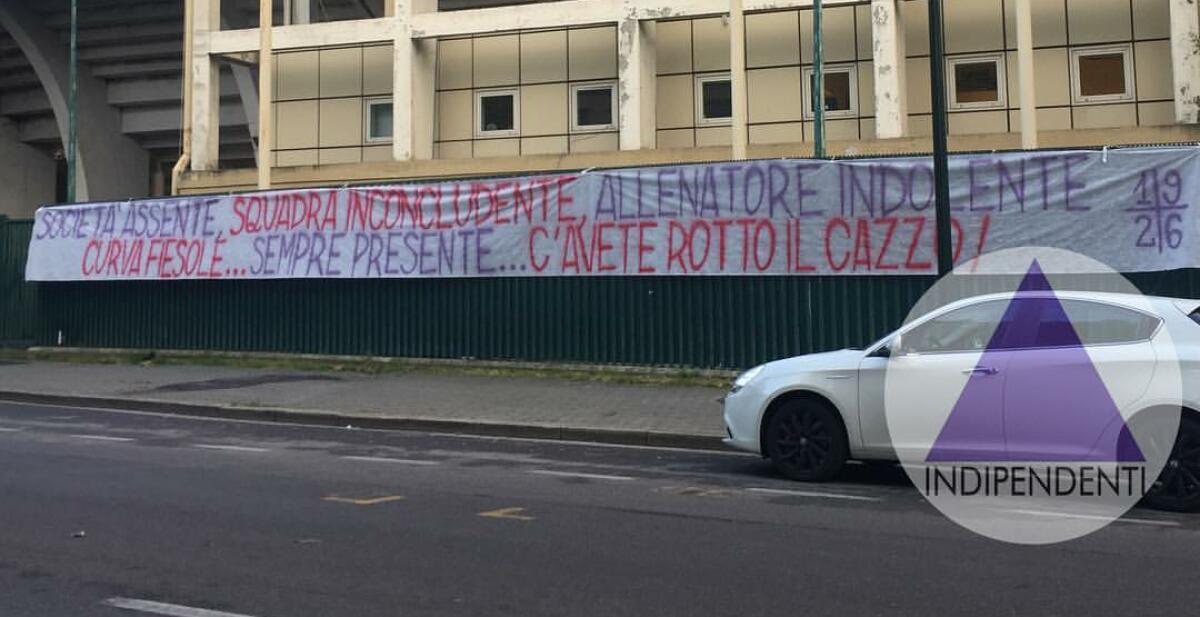 SOCIETÀ ASSENTE, SQUADRA INCONCLUDENTE, ALLENATORE INDOLENTE
CURVA FIESOLE... SEMPRE PRESENTE... C'AVETE ROTTO IL CAZZO!
19
26
INDIPENDENTI